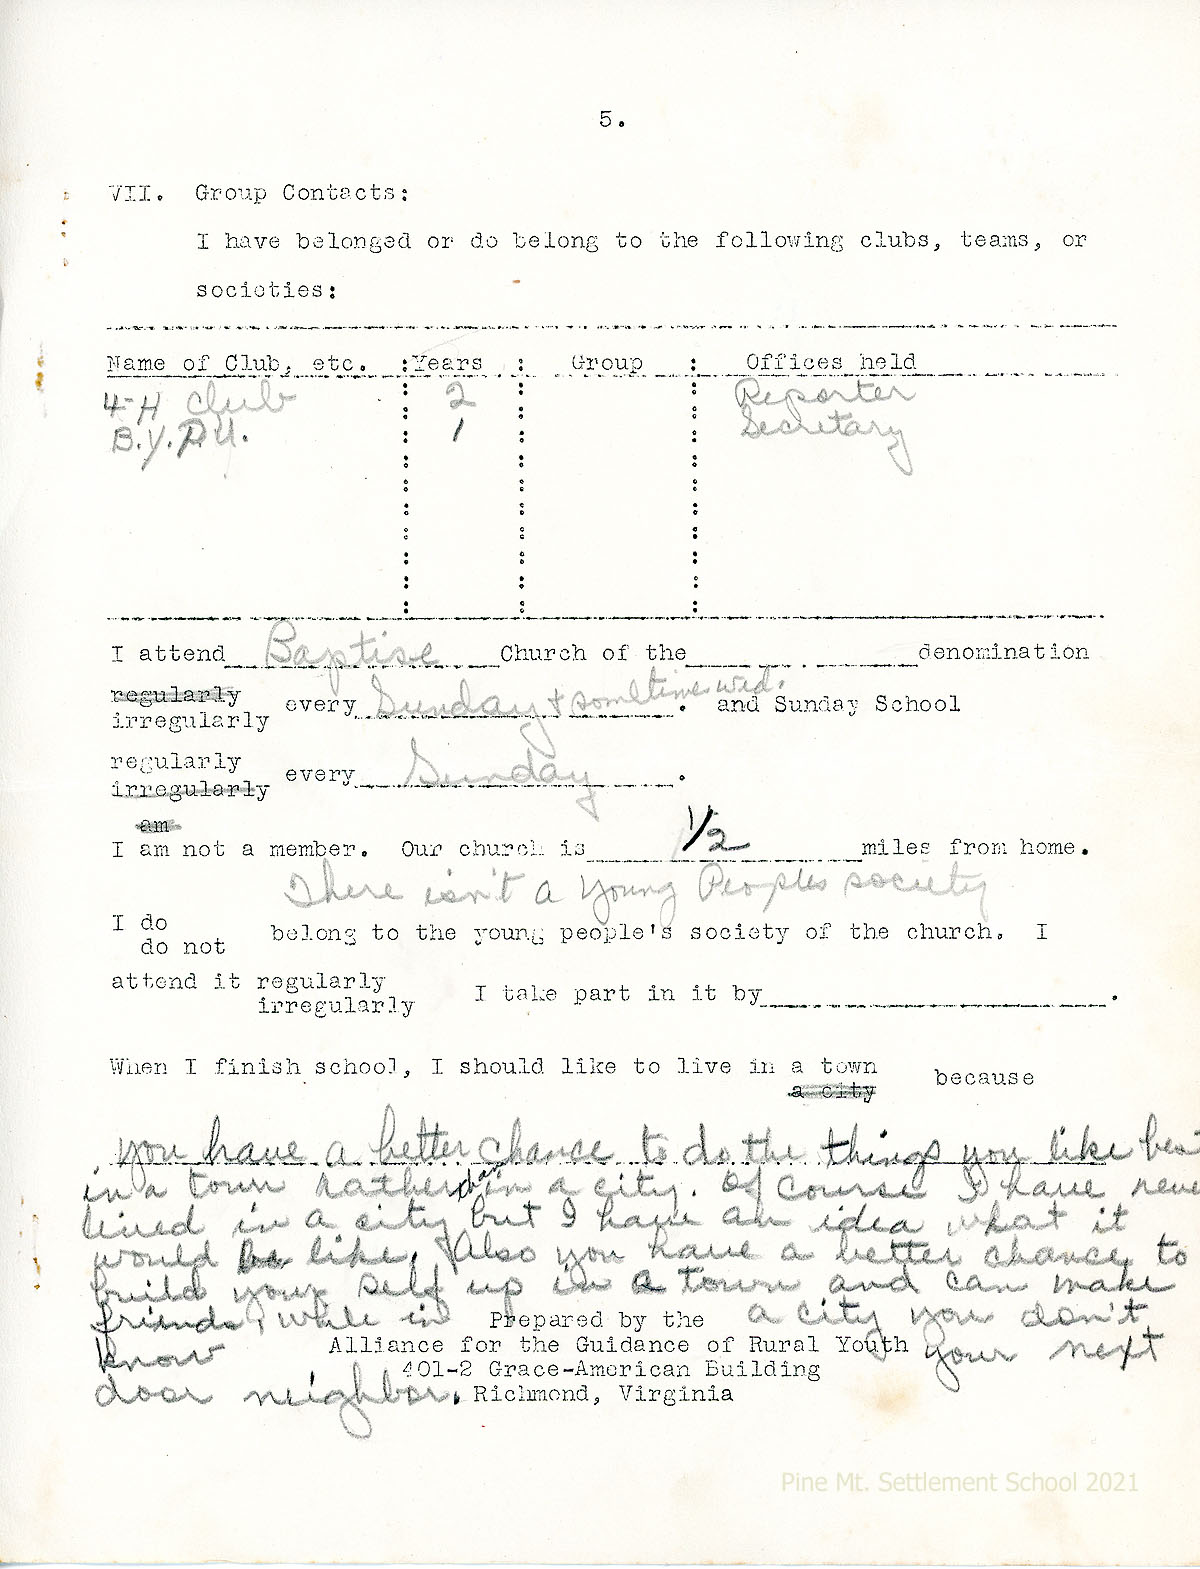 5.
VII. Group Contacts:
I have belonged or do belong to the following clubs, teams, or
societies:
Name of Club, etc. : Years : Group : Offices held
4-H club 2 Reporter
B.Y.P.U. 1 Secretary
I attend Baptise Church of the denomination
regularly
irregularly every Sunday + sometimes wed. and Sunday School
regularly
irregularly every Sunday.
am
I am not a member. Our church is 1/2 miles from home.
There isn't a Young Peoples society
I do
do not belong to the young people's society of the church. I
attend it regularly
irregularly I take part in it by .
When I finish school, I should like to live in a town
a city because
you have a better chance to do the things you like bes
in a town rather than in a city. Of course I have neve
lived in a city but I have an idea what it
would be like. Also you have a better chance to
build your self up in a town and can make
friends, while in a city you don't
know your next
door neighbor.
Prepared by the
Alliance for the Guidance of Rural Youth
401-2 Grace-American Building
Richmond, Virginia
Pine Mt. Settlement School 2021